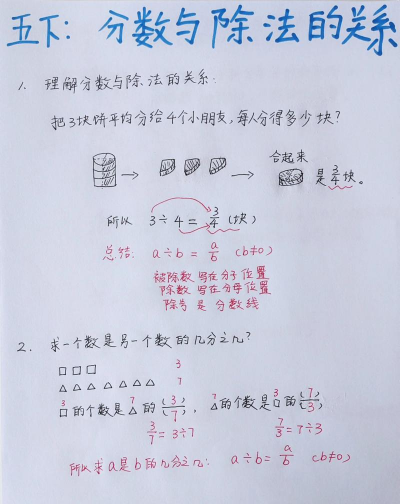 五下: 分数与除法的关系
1. 理解分数与除法的关系:
把3块饼平均分给4个小朋友,每人分得多少块?
合起来
是3/4块。
所以 3÷4=3/4(块)
总结: a÷b=a/b (b≠0)
被除数写在分子位置
除数写在分母位置
除号是分数线
2. 求一个数是另一个数的几分之几?
□□□ 3
△△△△△△△ 7
3 7 7 3
□的个数是△的(3)/(7), △的个数是□的(7)/(3)
3/7=3÷7 7/3=7÷3
所以求a是b的几分之几: a÷b=a/b (b≠0)